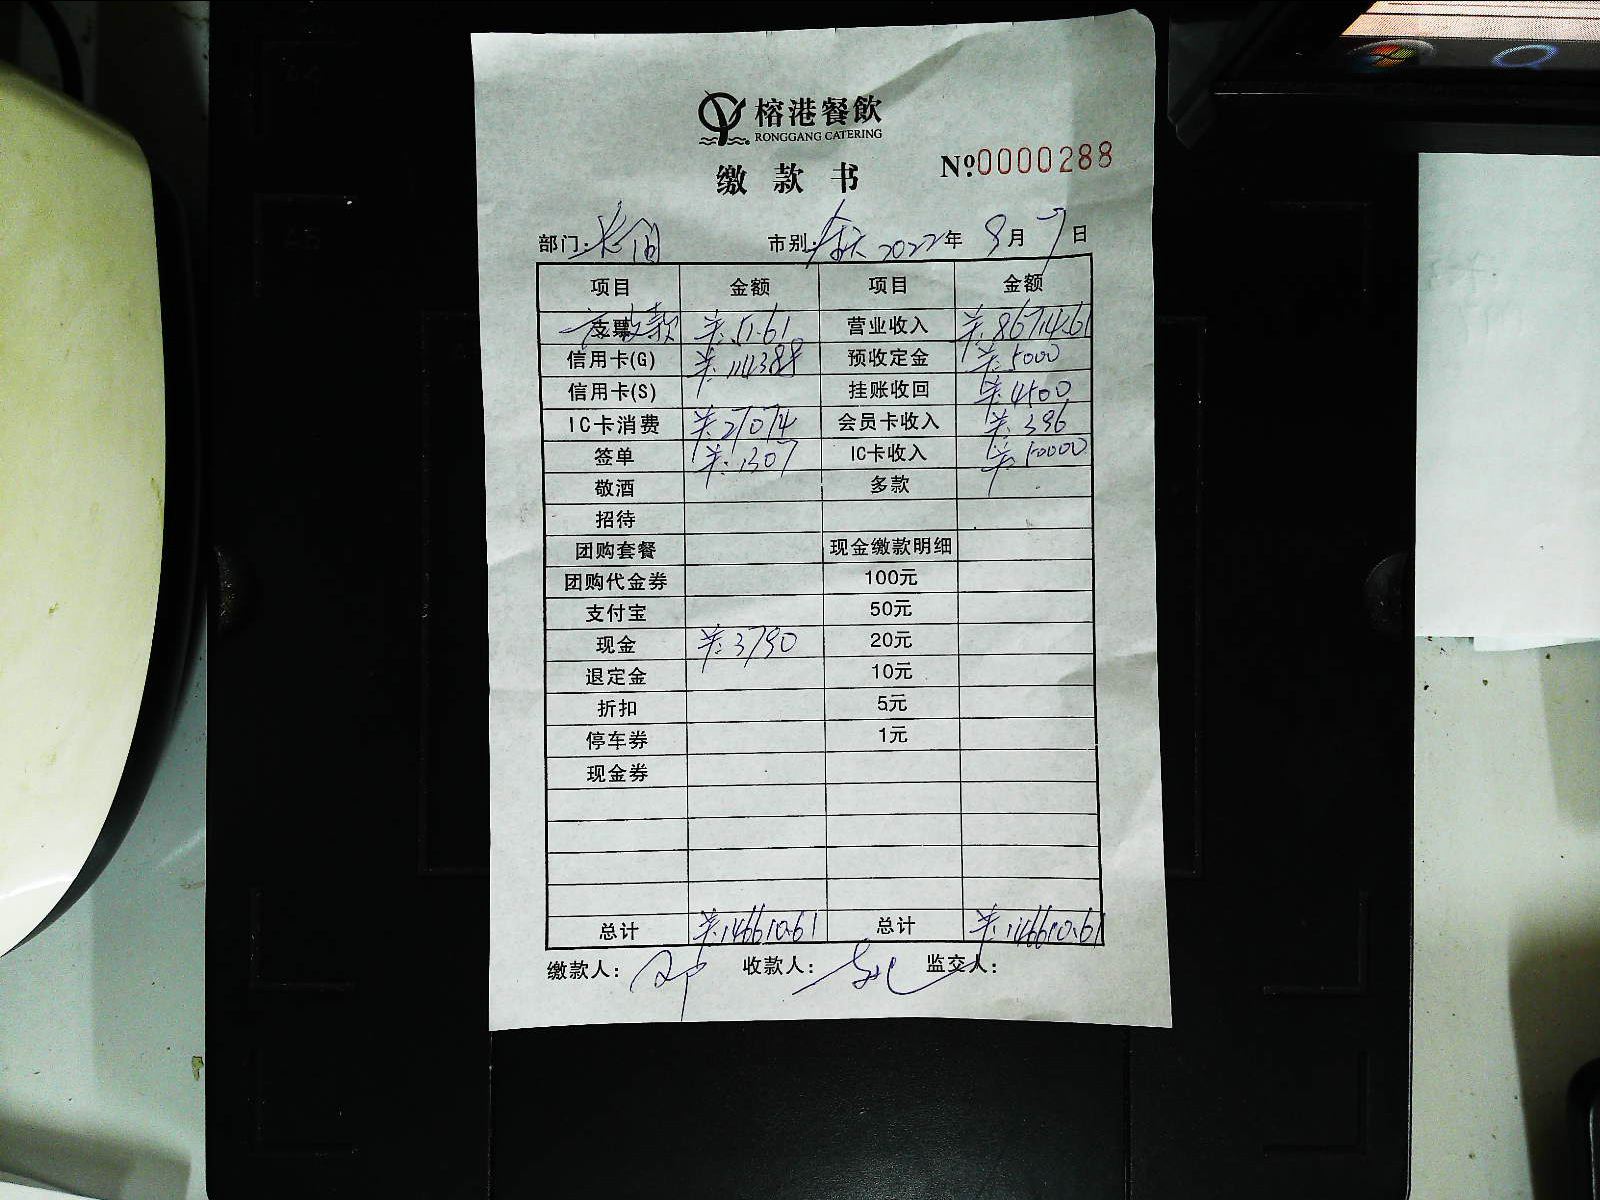 榕港餐飲
RONGGANG CATERING
缴款书
№0000288
部门: 市别: 全天 2022年 9月 7日
项目 金额 项目 金额
收款 ¥:51.61 营业收入 ¥:86714.61
信用卡(G) ¥:114388 预收定金 ¥:5000
信用卡(S) 挂账收回 ¥:4500
IC卡消费 ¥:27074 会员卡收入 ¥:396
签单 ¥:1307 IC卡收入 ¥:50000
敬酒 多款
招待
团购套餐 现金缴款明细
团购代金券 100元
支付宝 50元
现金 ¥:3790 20元
退定金 10元
折扣 5元
停车券 1元
现金券
总计 ¥:146610.61 总计 ¥:146610.61
缴款人: 收款人: 监交人: